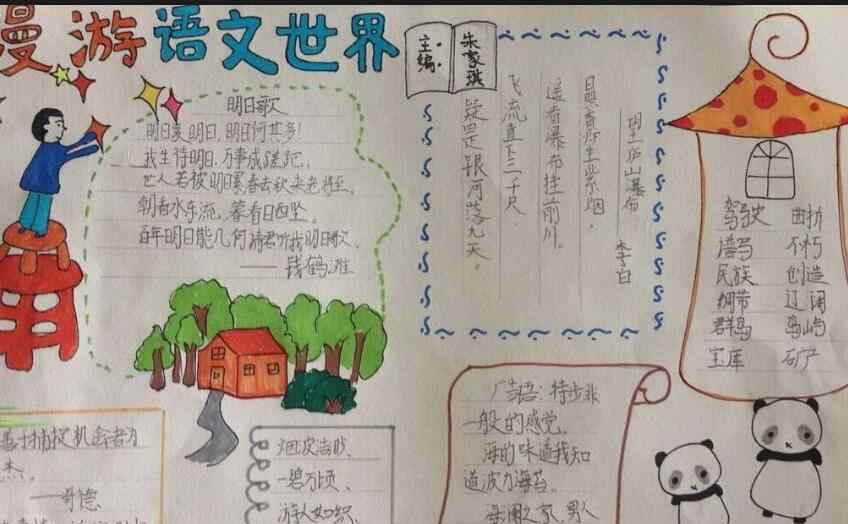 漫游语文世界
主编:
朱家琪
明日歌
明日复明日,明日何其多!
我生待明日,万事成蹉跎。
世人若被明日累,春去秋来老将至。
朝看水东流,暮看日西坠。
百年明日能几何,请君听我明日歌。
——钱鹤滩
望庐山瀑布
李白
日照香炉生紫烟,
遥看瀑布挂前川。
飞流直下三千尺,
疑是银河落九天。
驾驶 曲折
谱写 不朽
民族 创造
绸带 辽阔
群岛 岛屿
宝库 矿产
善于捕捉机会者为
杰。
——哥德
烟波浩渺、
一碧万顷、
游人如织、
广告语:特步非
一般的感觉。
海的味道我知
道波力海苔。
海澜之家,男人